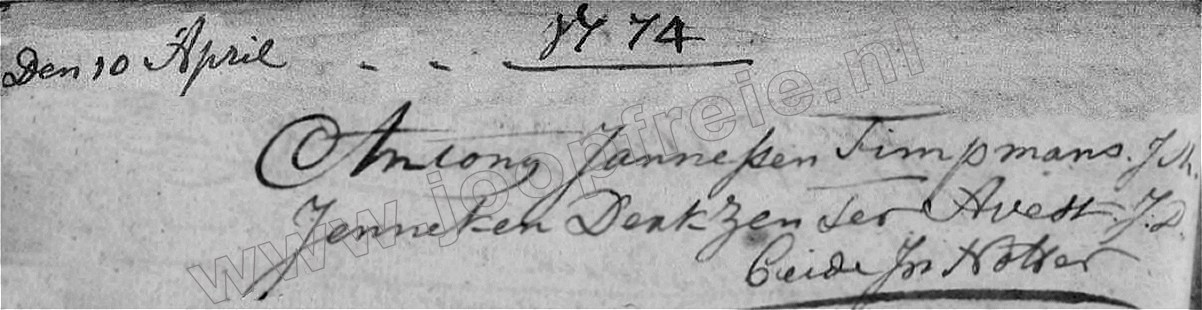 1774
Den 10 April
Antony Jannessen Timpmans. J.M.
Jenneken Derkzen ter Avest. J.D.
Beide In Notter
www.joopfreie.nl